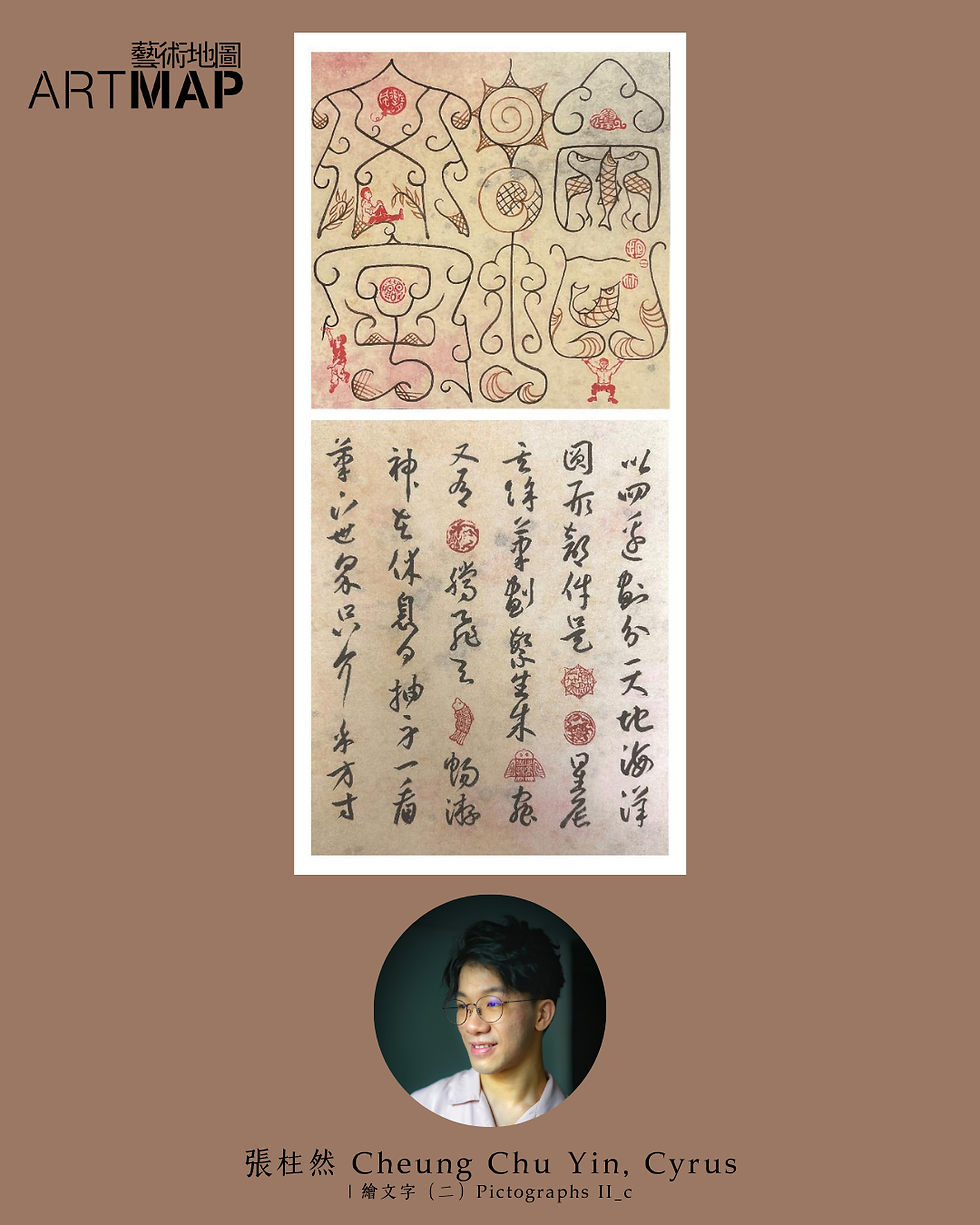 藝術地圖
ARTMAP
以四邊劃分天地海洋
圆形部件是星辰
筆劃繁生
又有騰飛暢游
神在休息抽一看
筆下世界只介乎方寸
張柱然 Cheung Chu Yin, Cyrus
| 繪文字（二）Pictographs II_c